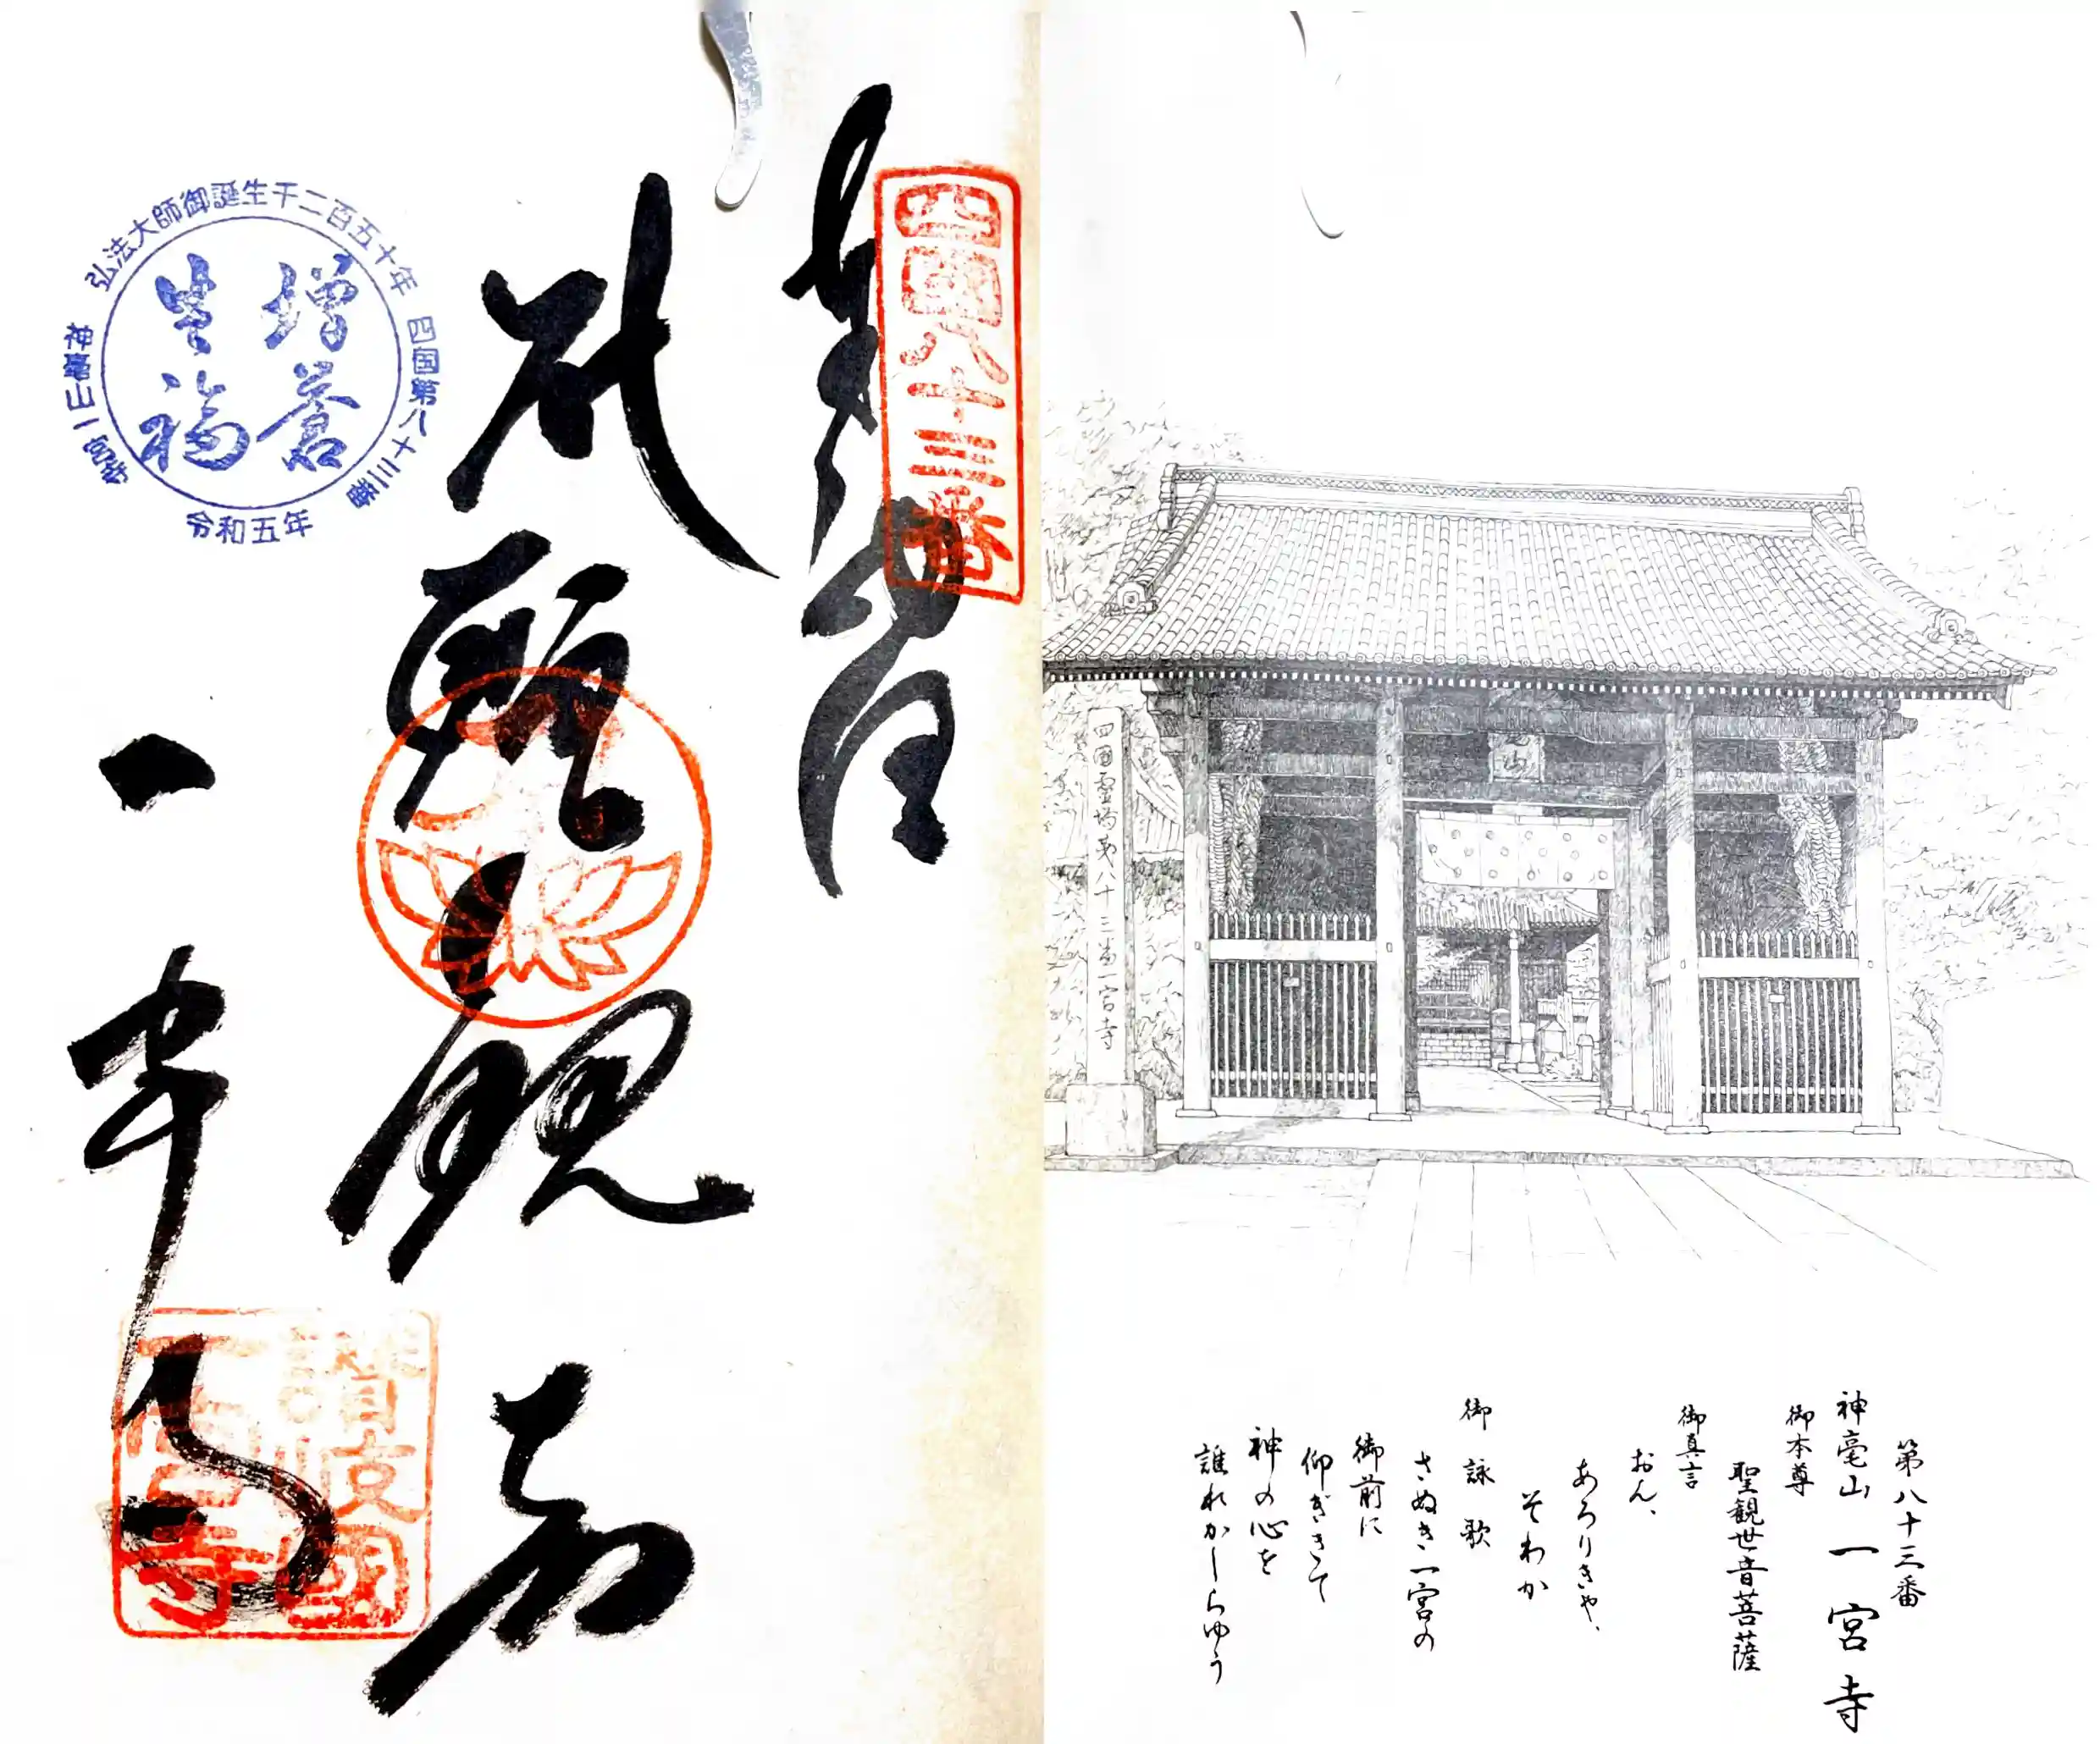 第八十三番
神毫山 一宮寺
御本尊
聖観世音菩薩
御真言
おん、
あろりきや、
そわか
御詠歌
さぬき一宮の
御前に
仰ぎきて
神の心を
誰れかしらゆう
四国霊場第八十三番一宮寺
四国八十三番
奉
聖観
一宮寺
讃岐國
一宮寺
弘法大師御誕生千二百五十年
四国第八十三番
令和五年
神毫山一宮寺
増益
生福